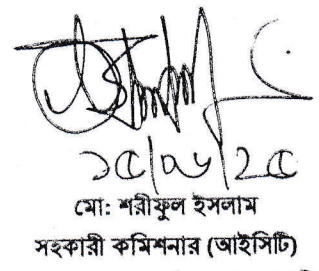 ১৫/০৬/২৫
মো: শরীফুল ইসলাম
সহকারী কমিশনার (আইসিটি)